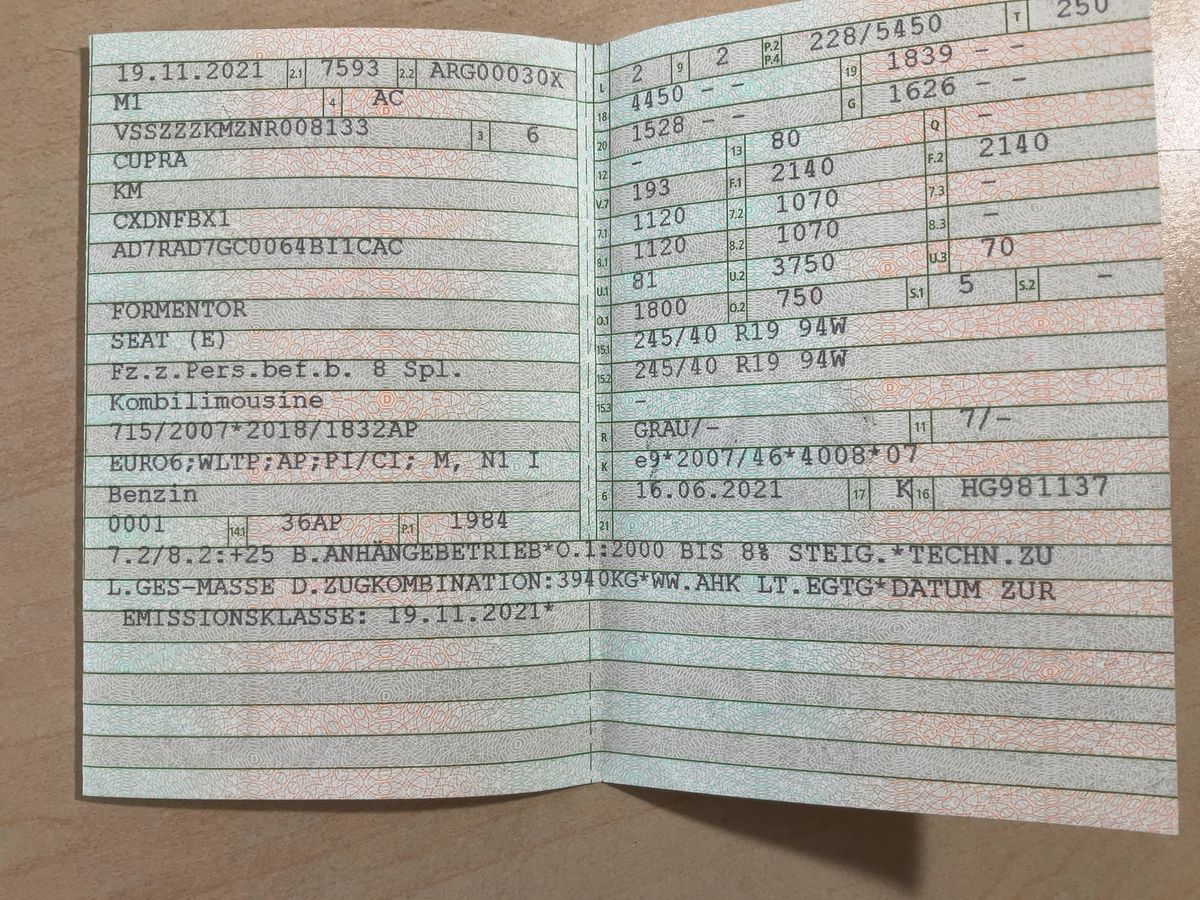 19.11.2021 2.1 7593 2.2 ARG00030X
M1 4 AC
VSSZZZKMZNR008133 3 6
CUPRA
KM
CXDNFBX1
AD7RAD7GC0064BI1CAC
FORMENTOR
SEAT (E)
Fz.z.Pers.bef.b. 8 Spl.
Kombilimousine
715/2007*2018/1832AP
EURO6;WLTP;AP;PI/CI; M, N1 I
Benzin
0001 14.1 36AP P.1 1984
L 2 9 2 P.2 P.4 228/5450 T 250
18 4450 - - 19 1839 - -
20 1528 - - G 1626 - -
12 - 13 80 Q -
V.7 193 F.1 2140 F.2 2140
7.1 1120 7.2 1070 7.3 -
8.1 1120 8.2 1070 8.3 -
U.1 81 U.2 3750 U.3 70
O.1 1800 O.2 750 S.1 5 S.2 -
15.1 245/40 R19 94W
15.2 245/40 R19 94W
15.3 -
R GRAU/- 11 7/-
K e9*2007/46*4008*07
6 16.06.2021 17 K 16 HG981137
21
7.2/8.2:+25 B.ANHÄNGEBETRIEB*O.1:2000 BIS 8% STEIG.*TECHN.ZU
L.GES-MASSE D.ZUGKOMBINATION:3940KG*WW.AHK LT.EGTG*DATUM ZUR
EMISSIONSKLASSE: 19.11.2021*